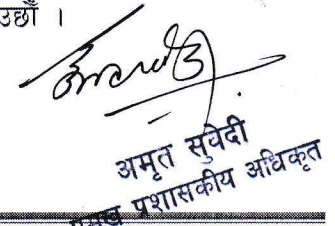 उछौँ ।
अमृत सुवेदी
प्रमुख प्रशासकीय अधिकृत